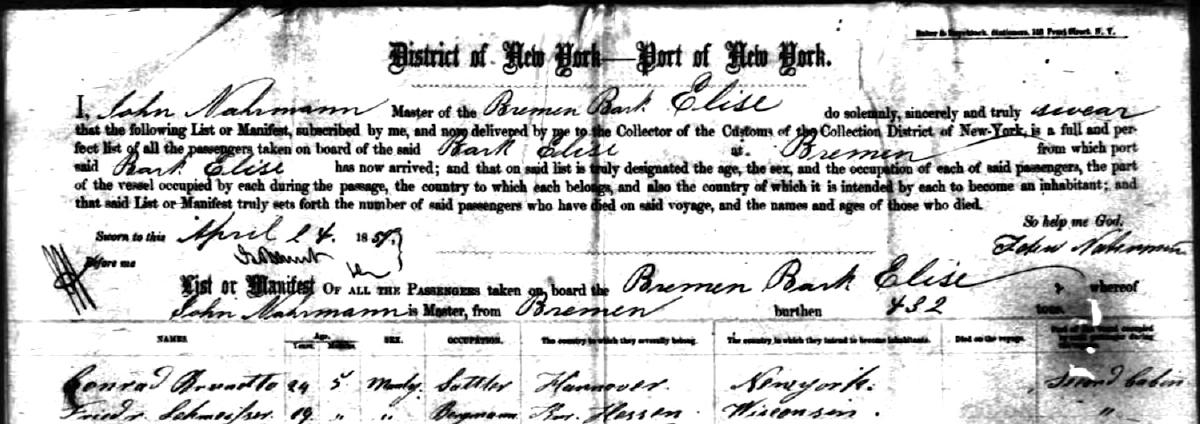 Baker & Stationers, 158 Pearl Street, N. Y.
District of New York—Port of New York.
I, John Nahrmann Master of the Bremen Bark Elise do solemnly, sincerely and truly swear
that the following List or Manifest, subscribed by me, and now delivered by me to the Collector of the Customs of the Collection District of New-York, is a full and per-
fect list of all the passengers taken on board of the said Bark Elise at Bremen from which port
said Bark Elise has now arrived; and that on said list is truly designated the age, the sex, and the occupation of each of said passengers, the part
of the vessel occupied by each during the passage, the country to which each belongs, and also the country of which it is intended by each to become an inhabitant; and
that said List or Manifest truly sets forth the number of said passengers who have died on said voyage, and the names and ages of those who died.
So help me God.
Sworn to this April 24. 185 John Nahrmann
Before me
List or Manifest OF ALL THE PASSENGERS taken on board the Bremen Bark Elise whereof
John Nahrmann is Master, from Bremen burthen 432 tons.
NAMES Age. Years. Months. SEX. OCCUPATION. The country to which they severally belong. The country to which they intend to become inhabitants. Died on the voyage. Part of the vessel occupied by each passenger during
Conrad 24 5 Manly Sattler Hannover. New york. Second Cabin
Friedr. Schmeisser 19 " " Bergmann Kur. Hessen. Wisconsin. "